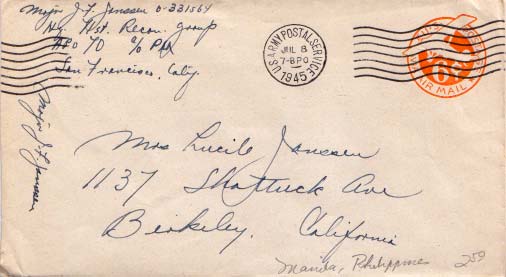 Major J. F. Janssen O-331564
Hq. 71st. Recon. Group
APO 70 % PM
San Francisco, Calif.
U.S. ARMY POSTAL SERVICE
JUL 8
7-8 PO
1945
AIR MAIL
6
Major J. F. Janssen
Mrs Lucile Janssen
1137 Shattuck Ave
Berkeley, California
Manila, Philippines
250